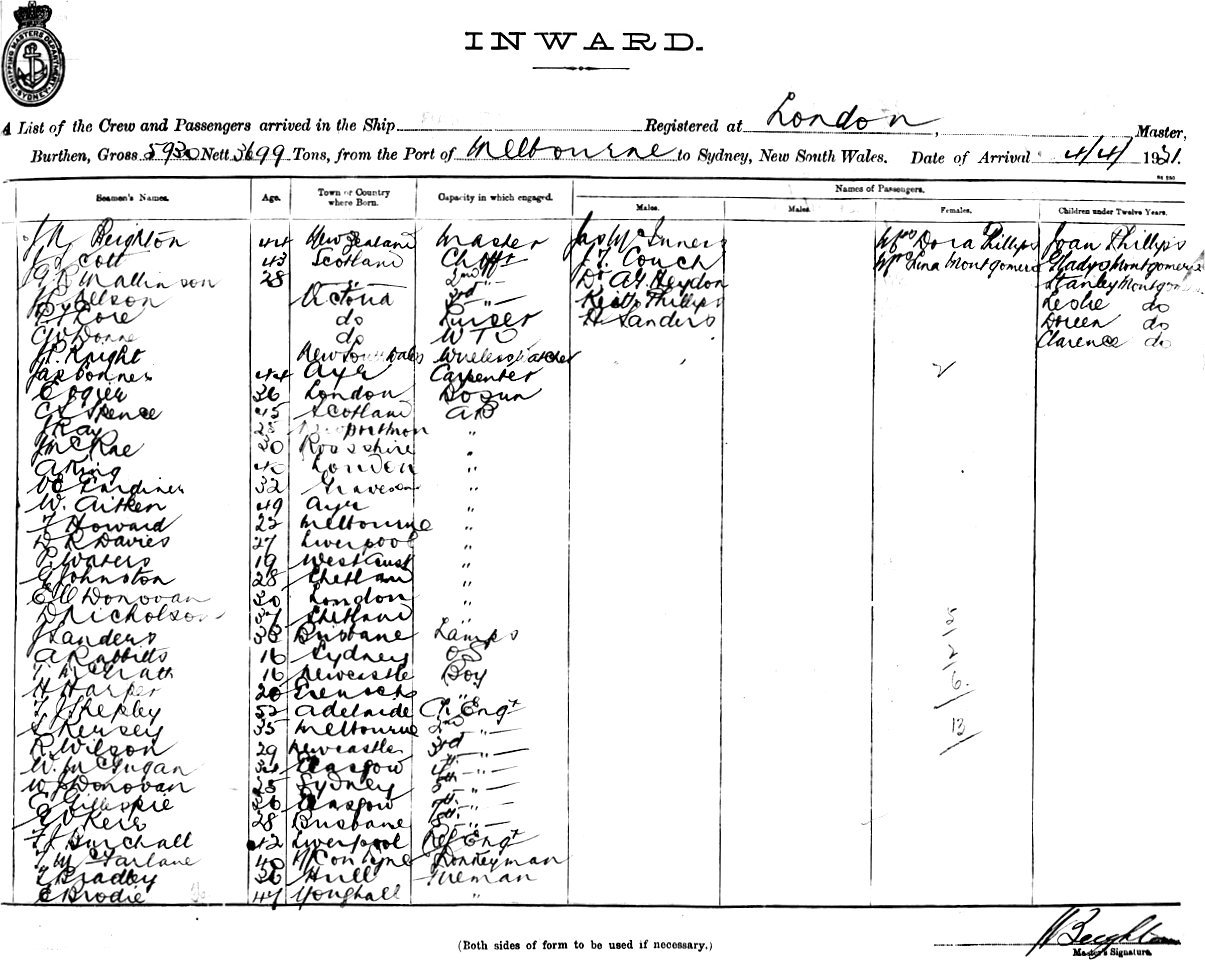 SHIPPING MASTERS DEPARTMENT SYDNEY
INWARD.
A List of the Crew and Passengers arrived in the Ship Registered at London, Master,
Burthen, Gross 5930 Nett 3699 Tons, from the Port of Melbourne to Sydney, New South Wales. Date of Arrival 4/4/1931.
Seamen's Names. Age. Town or Country where Born. Capacity in which engaged. Names of Passengers.
Males. Males. Females. Children under Twelve Years.
Beighton 44 New Zealand Master Jas McInnes Mrs Dora Phillips Joan Phillips
J Scott 43 Scotland Ch Offr Couch Mrs Lina Montgomerie Gladys Montgomerie
Mallinson 28 " 2nd " Dr A G Heydon Stanley Montgom
Nelson Victoria 3rd " Keith Phillips Leslie do
Core do Purser H Sanders Doreen do
do WTO Clarence do
Knight New South Wales Wireless Watcher
Jas Conner 44 Ayr Carpenter
E Ogier 36 London Bosun
C S Spence 45 Scotland AB
J Ray 25 "
J McRae 30 Rossshire "
A King 40 London "
Gardiner 32 "
W. Aitken 49 Ayr "
T Howard 22 Melbourne "
D R Davies 27 Liverpool "
P Waters 19 West Aust "
G Johnston 28 Shetland "
E O Donovan 30 London "
D Nicholson 37 Shetland "
J Sanders 33 Brisbane Lamps
A Rabbitts 16 Sydney OS
T McGrath 16 Newcastle Boy
H Harper 20 "
T J Shepley 52 Adelaide Ch Engr
S Kersey 35 Melbourne 2nd "
R Wilson 29 Newcastle 3rd "
W. McGugan 34 Glasgow 4th "
W J Donovan 25 Sydney 5th "
G Gillespie 26 Glasgow "
Keir 28 Brisbane "
F J Burchall 42 Liverpool Ref Engr
T McFarlane 40 Donkeyman
Bradley 36 Hull Fireman
E Brodie 47 Youghall "
13/6/2/25
(Both sides of form to be used if necessary.)
Beighton
Master's Signature.